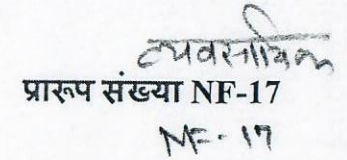 व्यवसायिक
प्रारूप संख्या NF-17
NF-17